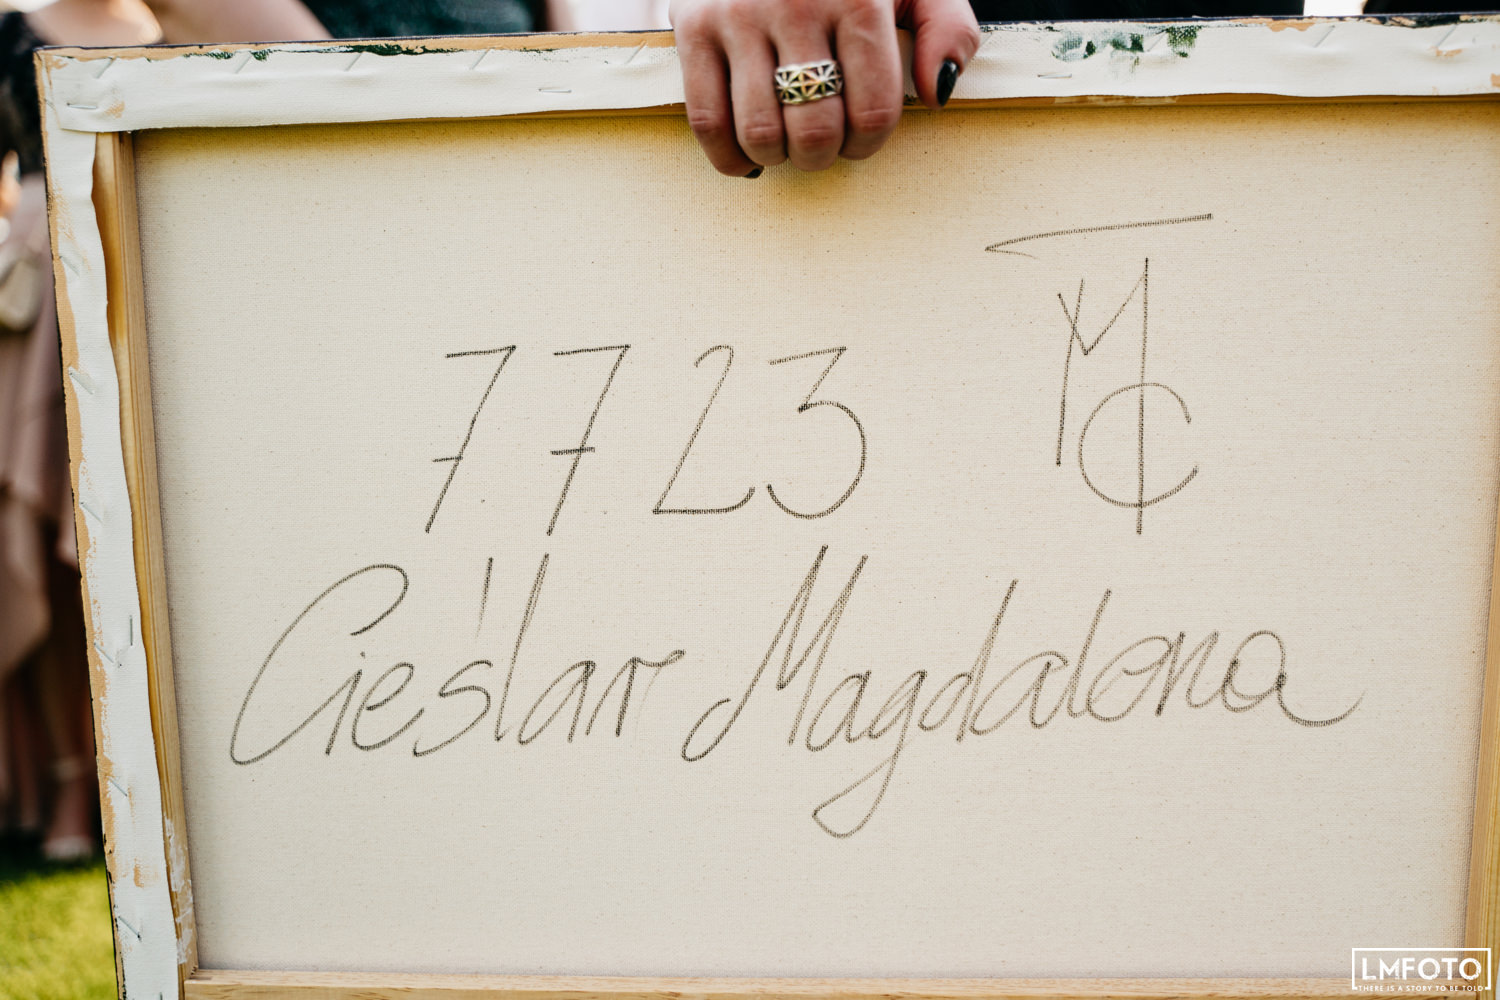 7723 MC
Cieślar Magdalena
LMFOTO
THERE IS A STORY TO BE TOLD